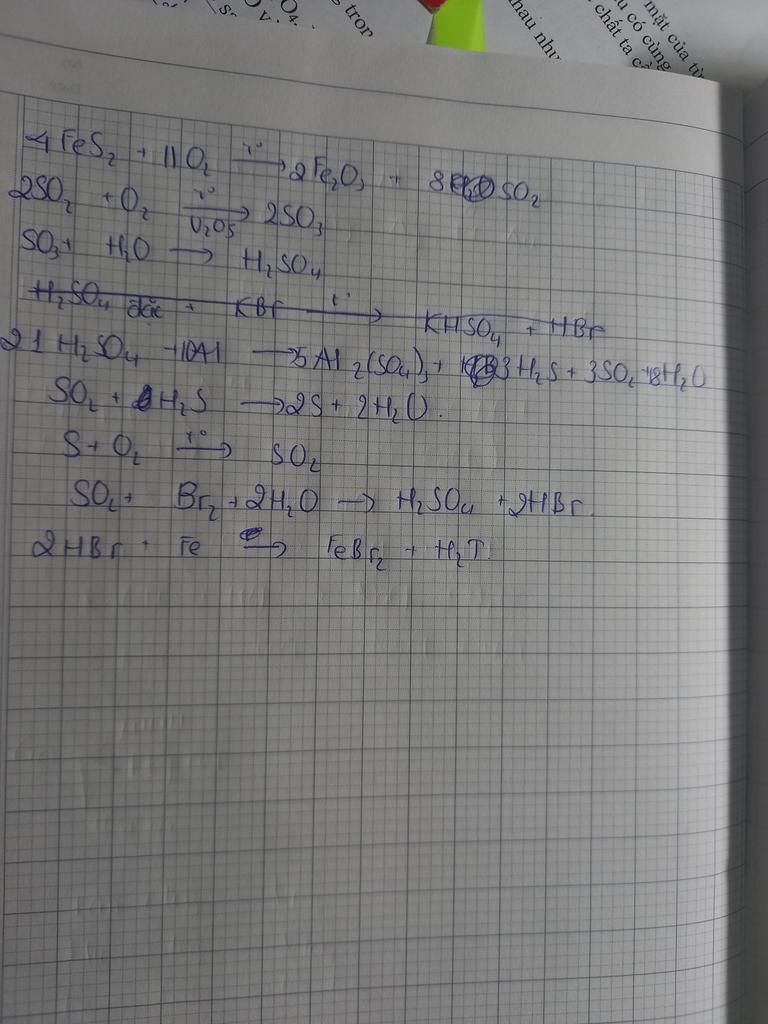 O₄.
trọn
hau nhu
mặt của
có cùng
chất ta
4FeS₂ + 11O₂ —t°→ 2Fe₂O₃ + 8SO₂
2SO₂ + O₂ —t°, V₂O₅→ 2SO₃
SO₃ + H₂O → H₂SO₄
H₂SO₄ đặc + KBr —t°→ KHSO₄ + HBr
21H₂SO₄ + 10Al → 5Al₂(SO₄)₃ + 3H₂S + 3SO₂ + 18H₂O
SO₂ + H₂S → 2S + 2H₂O.
S + O₂ —t°→ SO₂
SO₂ + Br₂ + 2H₂O → H₂SO₄ + 2HBr.
2HBr + Fe → FeBr₂ + H₂↑.